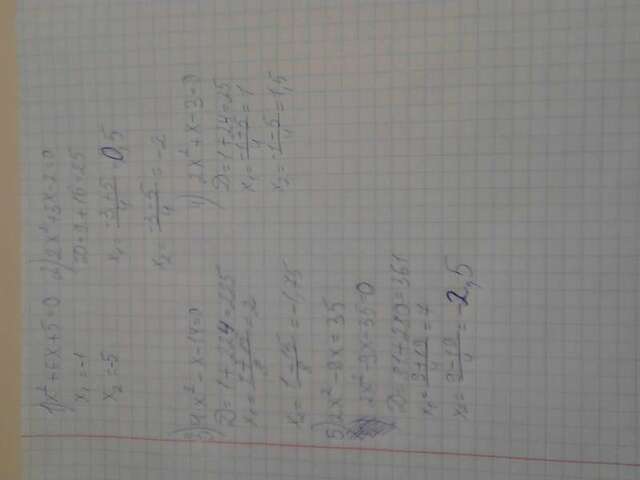 1) x²+6x+5=0
x₁=-1
x₂=-5
2) 2x²+3x-2=0
D=9+16=25
x₁=(-3+5)/4=0,5
x₂=(-3-5)/4=-2
3) 4x²-x-14=0
D=1+224=225
x₁=(1+15)/8=2
x₂=(1-15)/8=-1,75
4) 2x²+x-3=0
D=1+24=25
x₁=(-1+5)/4=1
x₂=(-1-5)/4=1,5
5) 2x²-9x=35
2x²-9x-35=0
D=81+280=361
x₁=(9+19)/4=7
x₂=(9-19)/4=-2,5